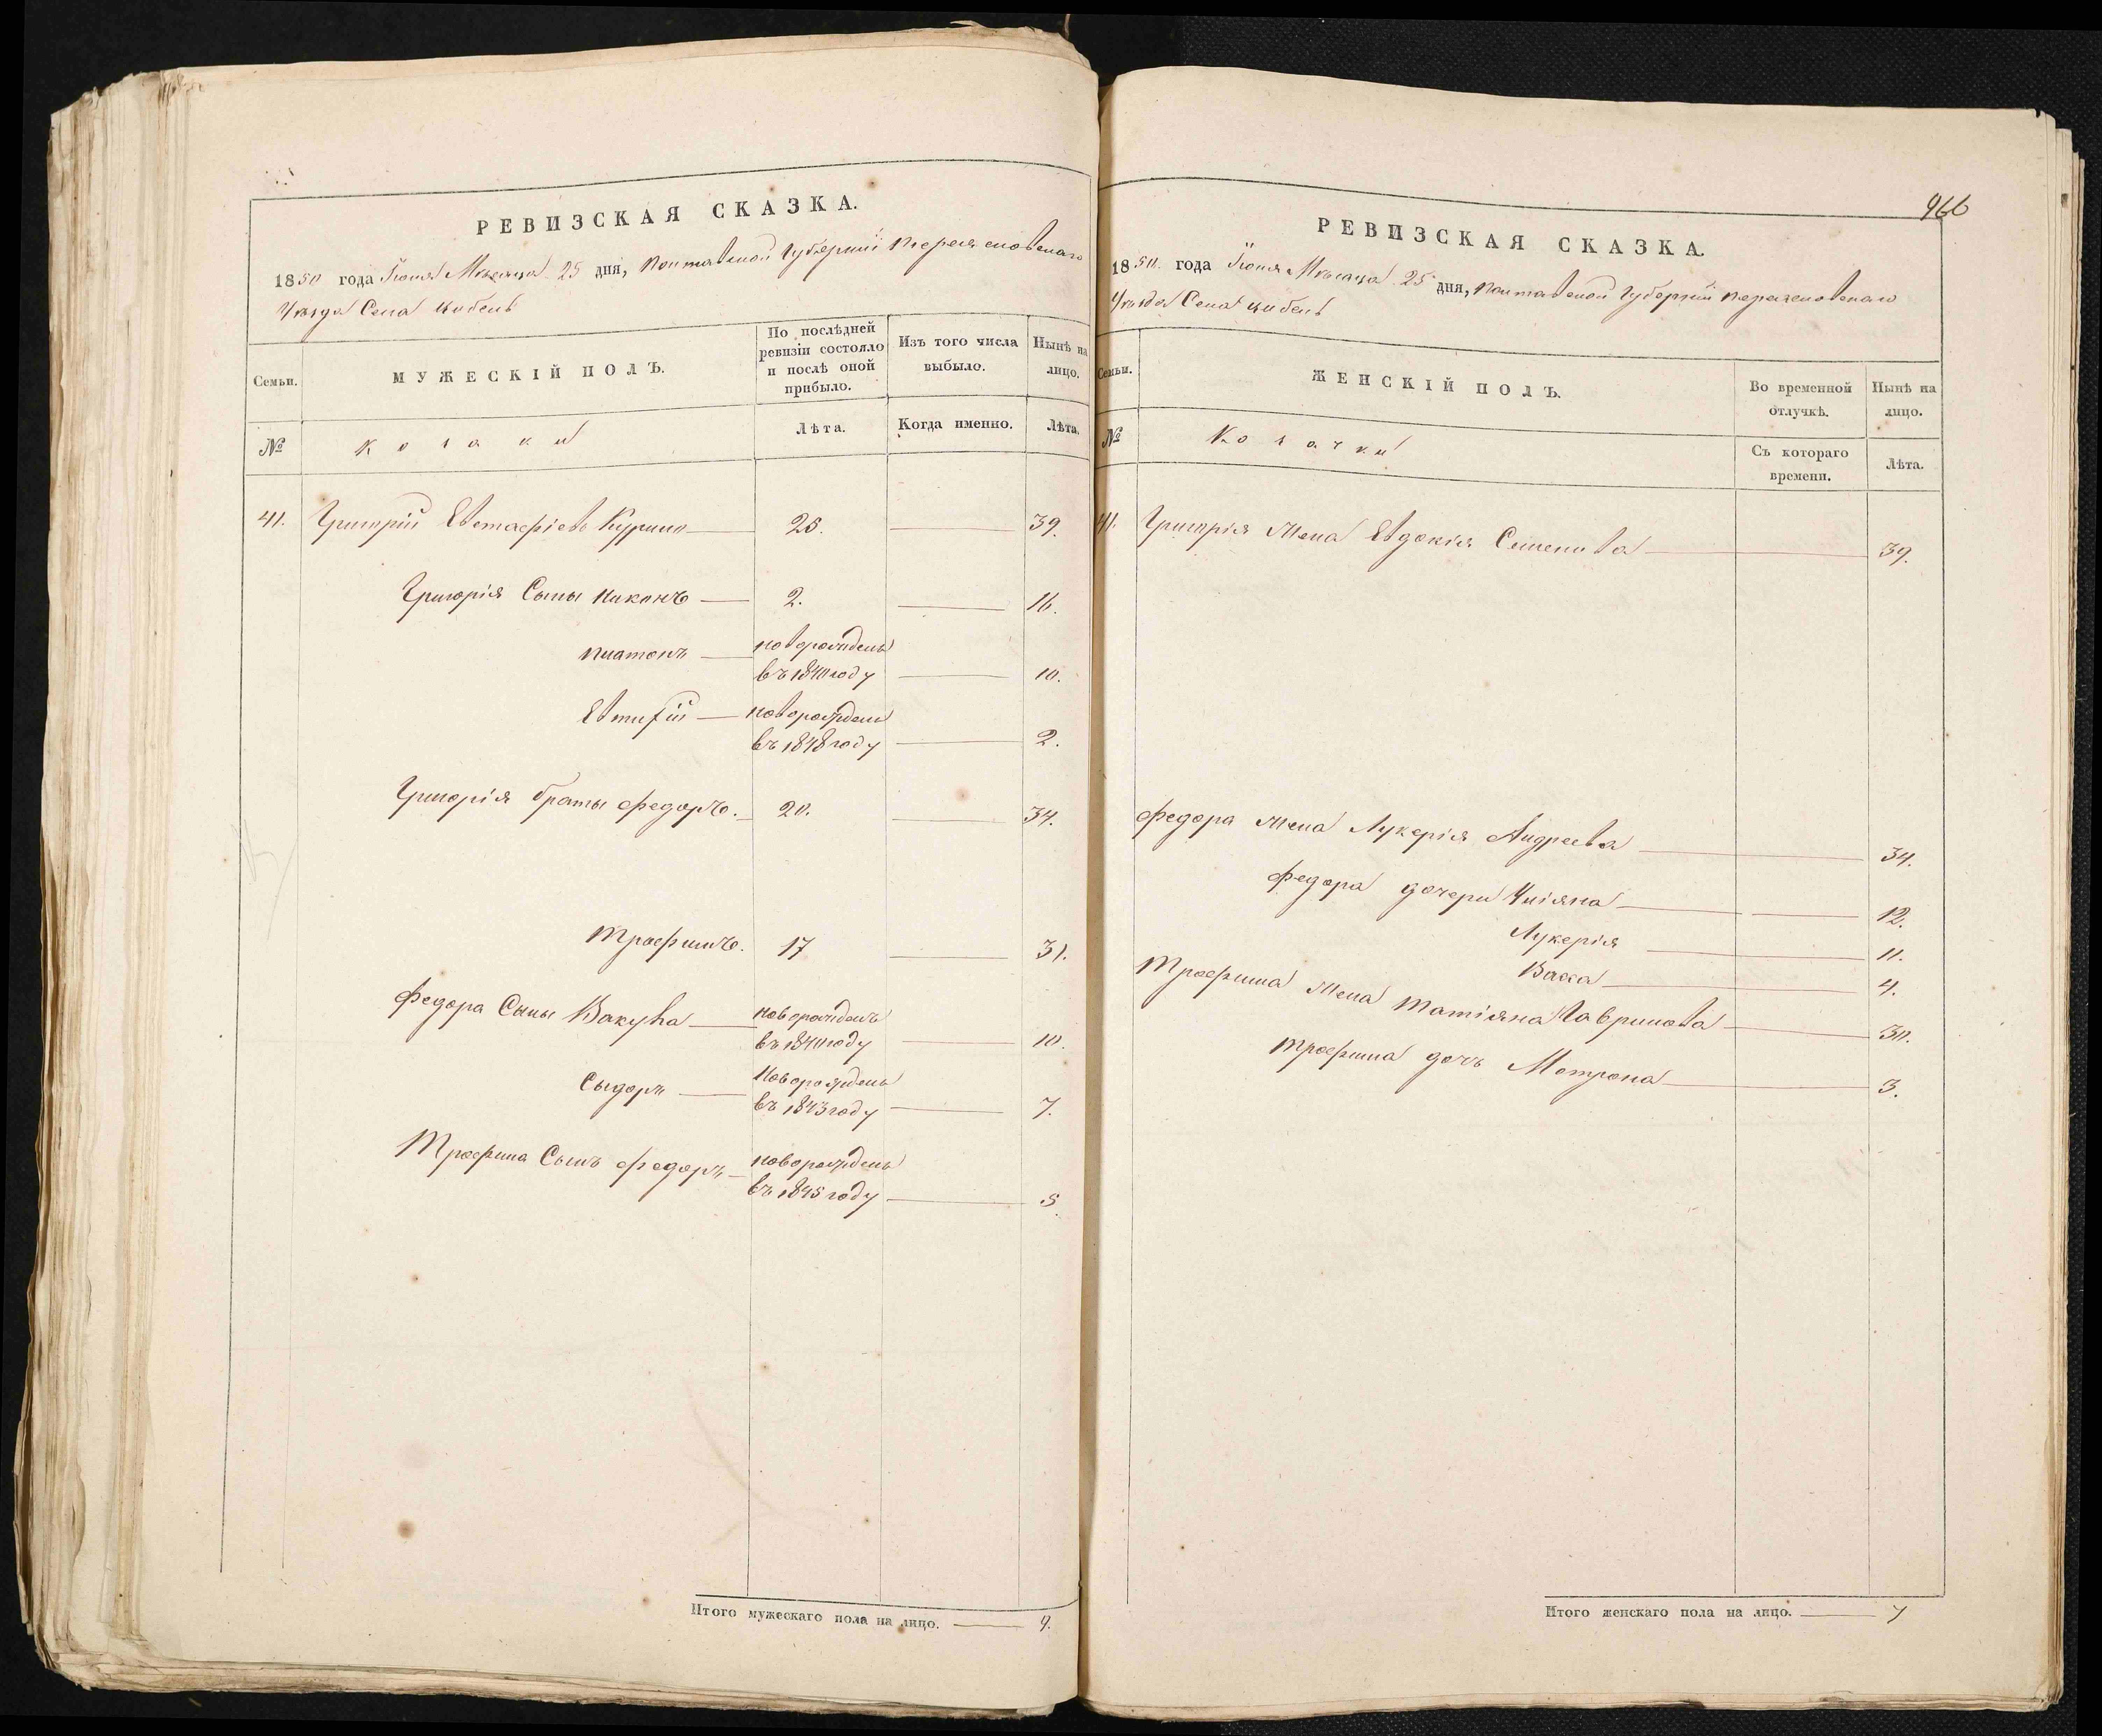 РЕВИЗСКАЯ СКАЗКА.
1850 года Іюня Мѣсяца 25 дня, Полтавской Губерніи Переясловскаго
Уѣзда Села Цибель
Семьи.
МУЖЕСКІЙ ПОЛЪ.
По послѣдней
ревизіи состояло
и послѣ оной
прибыло.
Изъ того числа
выбыло.
Нынѣ на
лицо.
№
Козаки
Лѣта.
Когда именно.
Лѣта.
41. Григорій Евстафіевъ 25. 39.
Григорія Сыны Никонъ 2. 16.
Платонъ новорожденъ
въ 1840 году 10.
Евтихій новорожденъ
въ 1848 году 2.
Григорія браты Федоръ. 20. 34.
Трофимъ. 17 31.
Федора Сыны Вакула новорожденъ
въ 1840 году 10.
Сыдоръ Новорожденъ
въ 1843 году 7.
Трофима Сынъ Федоръ новорожденъ
въ 1845 году 5.
Итого мужескаго пола на лицо. 9.
966
РЕВИЗСКАЯ СКАЗКА.
1850. года Іюня Мѣсяца 25 дня, Полтавской Губерніи Переясловскаго
Уѣзда Села Цибель
Семьи.
ЖЕНСКІЙ ПОЛЪ.
Во временной
отлучкѣ.
Нынѣ на
лицо.
№
Козачки
Съ котораго
времени.
Лѣта.
41. Григорія Жена Евдокія Семенова 39.
Федора Жена Лукерія Андреева 34.
Федора дочери Уліяна 12.
Лукерія 11.
Васса 4.
Трофима Жена Татіяна Гаврилова 30.
Трофима дочь Мотрона 3.
Итого женскаго пола на лицо. 7